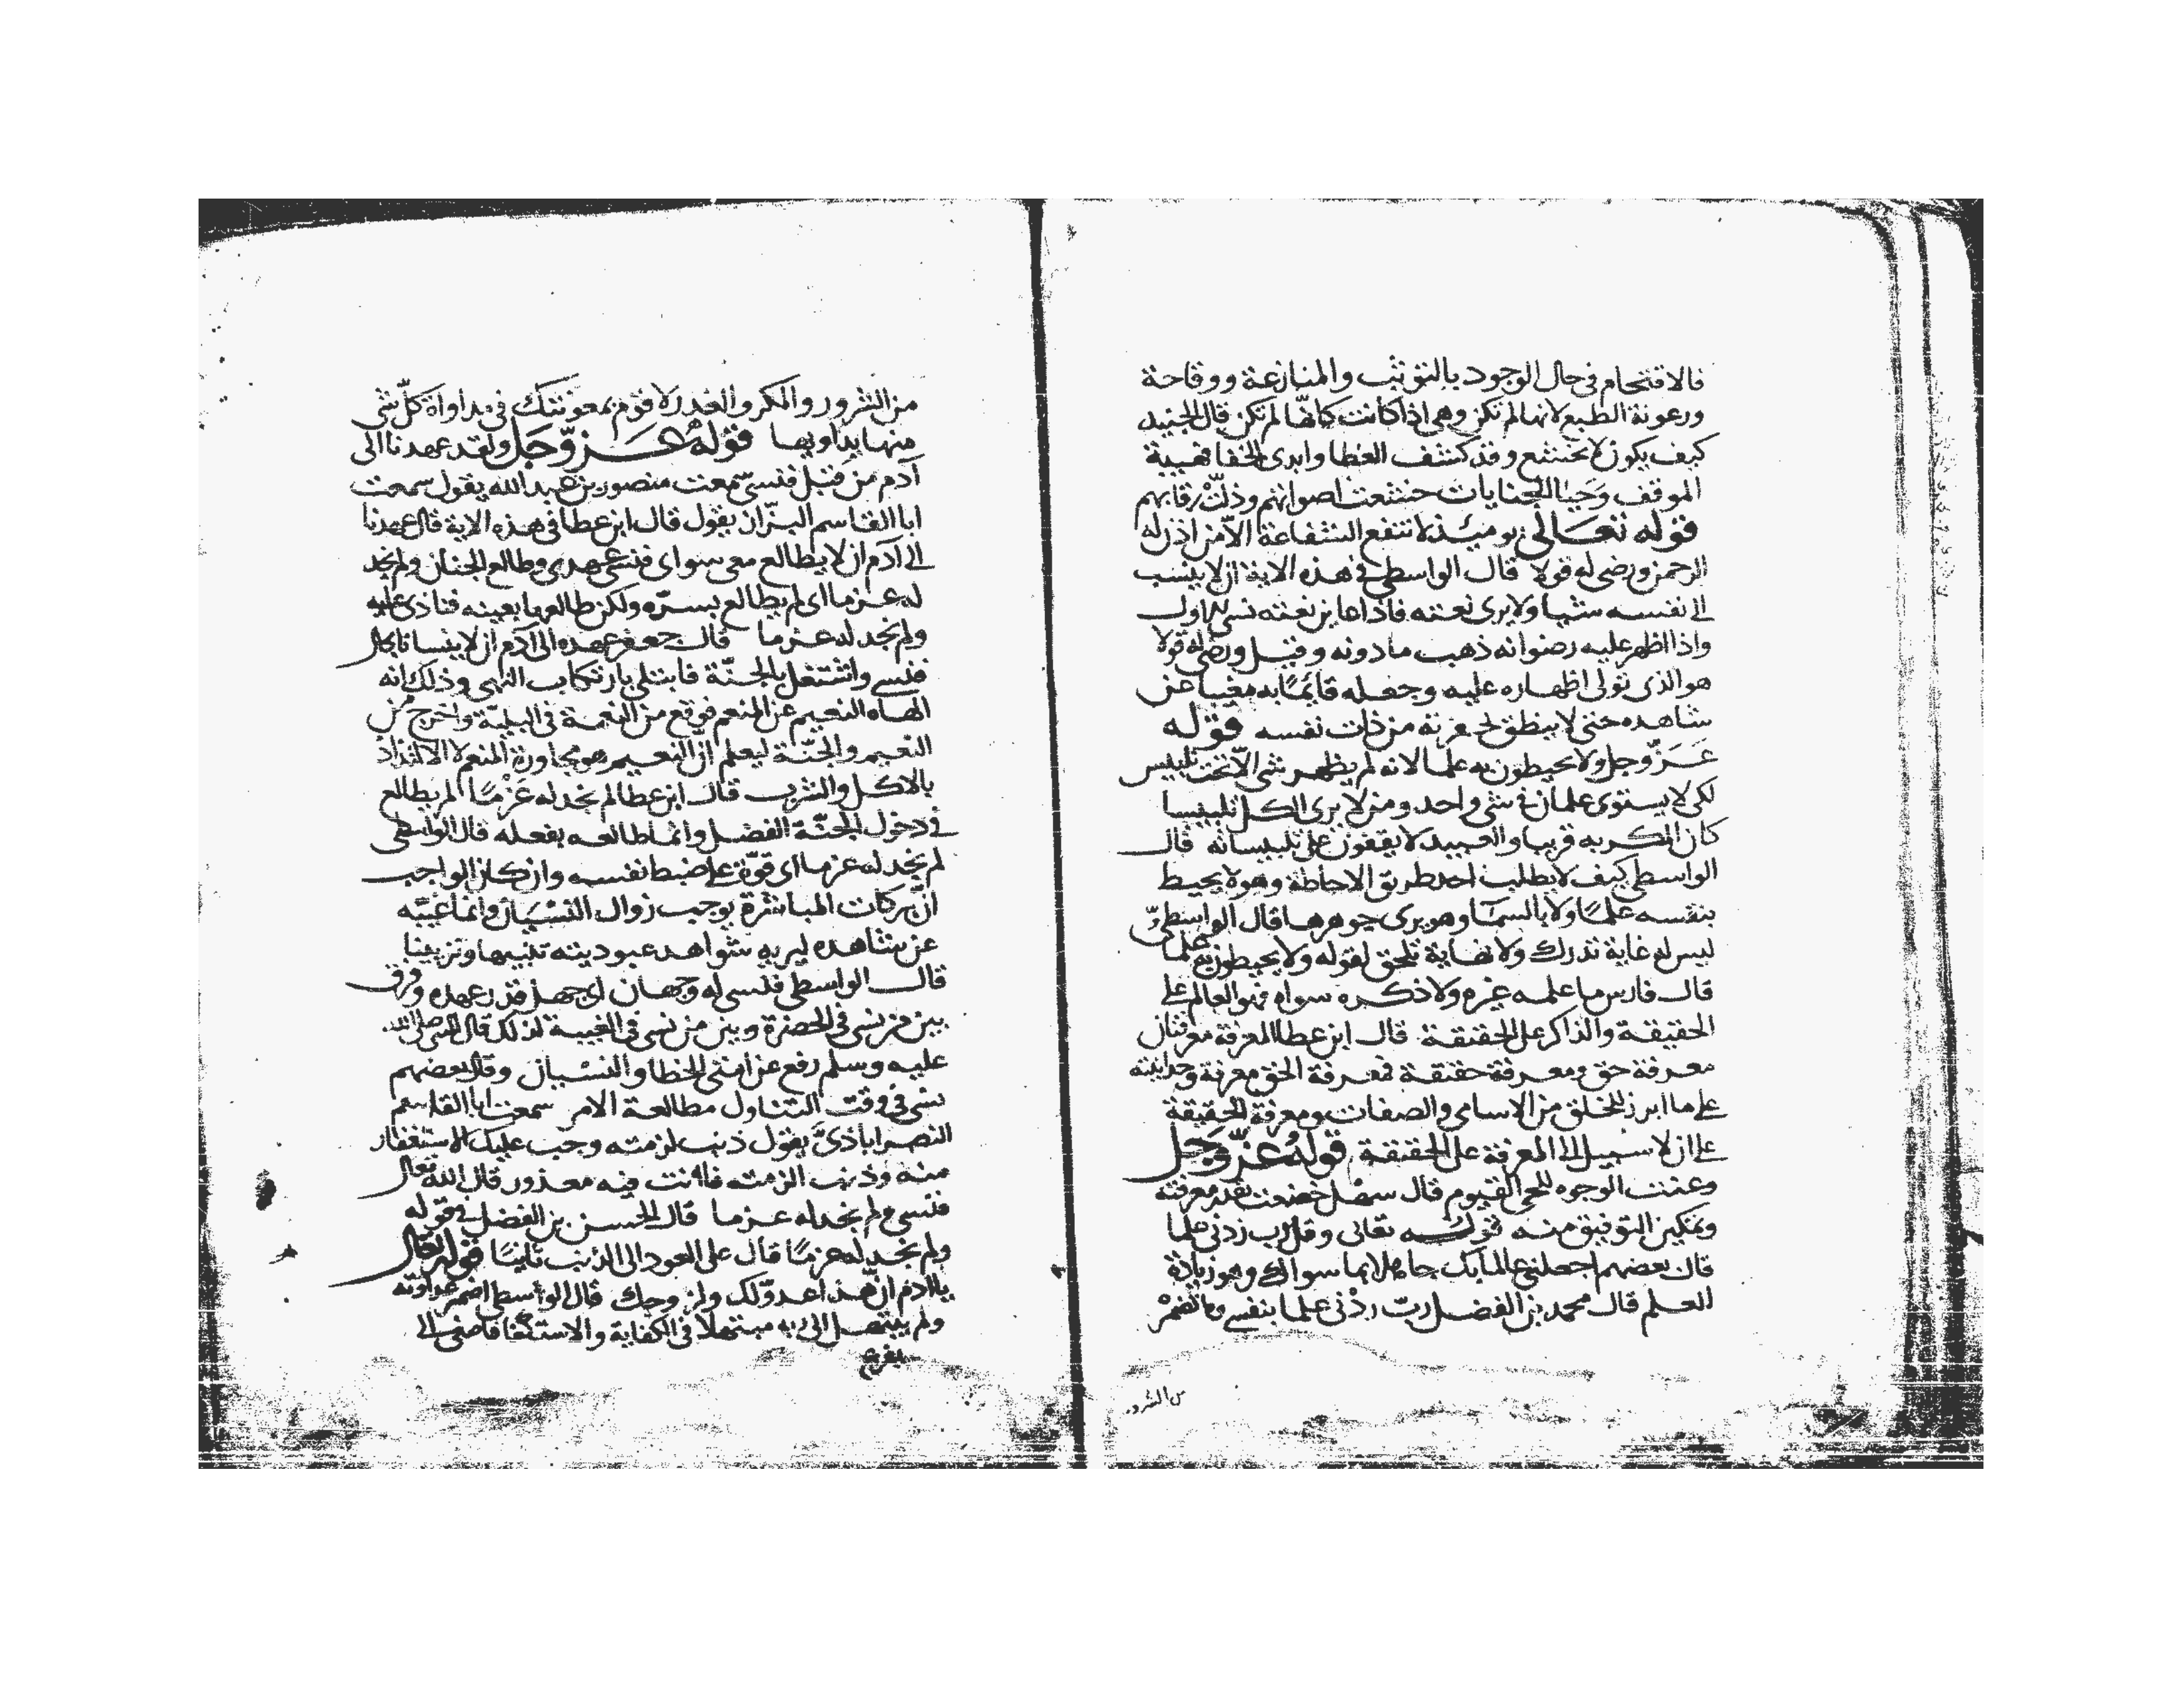 فالاقتحام في حال الوجود بالتوثب والمنازعة ووقاحة
ورعونة الطبع لانها لم تكن وهي اذا كانت كانها لم تكن قال الجنيد
كيف يكون لا تخشع وقد كشف الغطا وابدى الخفا فهيبة
الموقف وحيا الجنايات خشعت اصواتهم وذلّت رقابهم
قوله تعالى يوميذ لا تنفع الشفاعة الّا من اذن له
الرحمن ورضى له قولا قال الواسطى في هذه الاية ان لا ينسب
الى نفسه شيا ولا يرى نعته فاذا عاين نعته نسى
واذا اظهر عليه رضوانه ذهب ما دونه وقيل ورضى له قولا
هو الذى تولى اظهاره عليه وجعله قايمًا به مغيبا عن
شاهده حتى لا ينطق من ذات نفسه قوله
عَزّ وجل ولا يحيطون به علما لانه لم يظهر شى الّا تحت تلبيس
لكى لا يستوى علمان في شى واحد ومن لا يرى الكل تلبيسا
كان المكر به قريبا والعبيد لا يقفون على تلبيساته قال
الواسطى كيف لا يطلب احد طريق الاحاطة وهو لا يحيط
بنفسه علمًا ولا بالسمآ وهو يرى جوهرها قال الواسطى
ليس له غاية تدرك ولا نهاية تلحق لقوله ولا يحيطون به علما
قال فارس ما علمه غيره ولا ذكره سواه فهو العالم على
الحقيقة والذاكر على الحقيقة قال ابن عطا المعرفة معرفتان
معرفة حق ومعرفة حقيقة فمعرفة الحق معرفة وحدانيته
على ما ابرز للخلق من الاسامى والصفات ومعرفة الحقيقة
على ان لا سبيل الى المعرفة على الحقيقة قوله عزّ وجل
وعنت الوجوه للحى القيوم قال سهل خضعت بقدر معرفته
وتمكين التوفيق منه قوله تعالى وقل رب زدنى علما
قال بعضهم اجعلنى عالما بك جاهلا بما سواك وهو زيادة
العلم قال محمد بن الفضل ربّ زدْنى علما بنفسى وما تضمر
من الشرور
من الشرور والمكر والغدر لاقوم بمعونتك في مداواة كلّ شى
منها بيداويها قوله عَزّ وَجَل ولقد عهدنا الى
آدم من قبل فنسى سمعت منصور بن عبد الله يقول سمعت
ابا القاسم البزّاز يقول قال ابن عطا في هذه الاية قال عهدنا
الى آدم ان لا يطالع معى سواى فنسى عهدى وطالع الجنان ولم نجد
له عزما اى لم يطالع بسرّه ولكن طالعها بعينه فنادى عليه
ولم نجد له عزما قال جعفر عهده الى آدم ان لا ينسانا بحال
فنسى واشتغل بالجنّة فابتلى بارتكاب النهى وذلك انه
الهاه النعيم عن المنعم فوقع من النعمة في البليّة واخرج من
النعيم والجنّة ليعلم انّ النعيم هو مجاورة المنعم لا الالتذاذ
بالاكل والشرب قال ابن عطا لم نجد له عَزْمًا لم يطالع
في دخول الجنّة الفضل وانما طالعه بفعله قال الواسطى
لم نجد له عزما اى قوّة على ضبط نفسه وان كان الواجب
انّ بركات المباشرة يوجب زوال النسْيَان وانما غيّبه
عن شاهده ليريه شواهد عبوديته تنبيها وتزيينا
قال الواسطى فنسى له وجهان اى جهل قدر عهده وفرق
بين من نسى في الحضرة وبين من نسى في الغيبة لذلك قال النبى صلى الله
عليه وسلم رفع عن امتى الخطا والنسْيان وقال بعضهم
نسى في وقت التناول مطالعة الامر سمعت ابا القاسم
النصراباذىّ يقول ذنب لزمته وجب عليك الاستغفار
منه وذنب الزمته فانت فيه معذور قال الله تعالى
فنسى ولم نجد له عزما قال الحسن بن الفضل في قوله
ولم نجد له عزمًا قال على العود الى الذنب ثانيًا قوله تعالى
يا ادم انّ هذا عدوّ لك ولزوجك قال الواسطى اضمر عداوته
ولم يبتهل الى ربه مبتهلا في الكفاية والاستكفا فاضنى الى